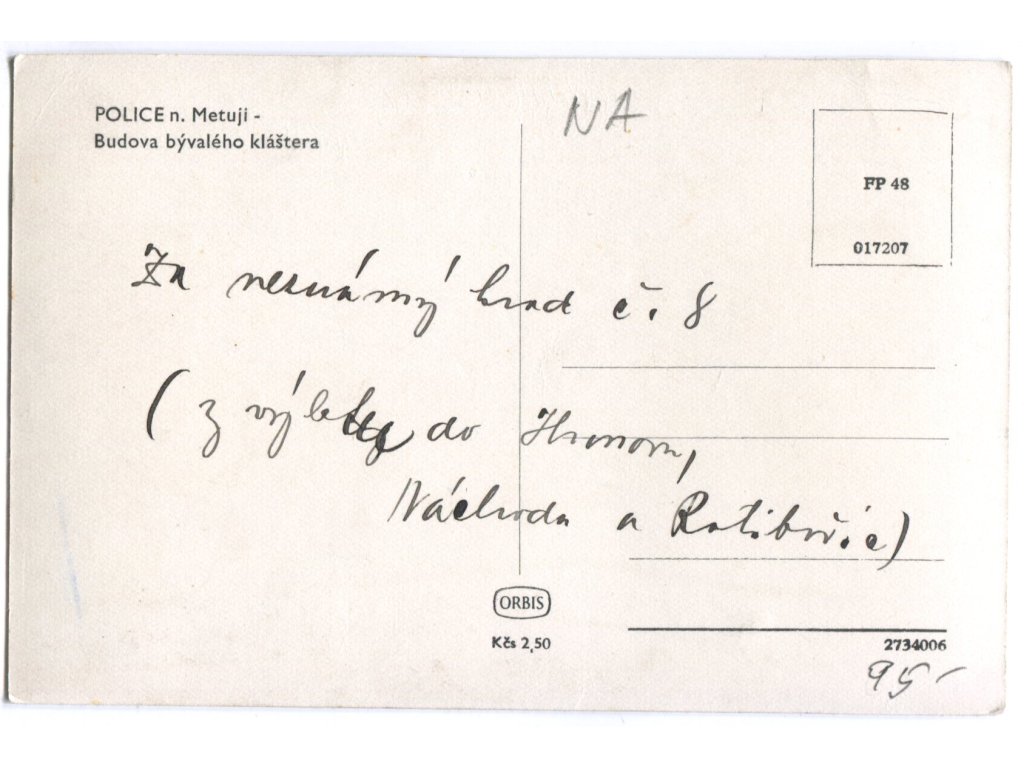 POLICE n. Metuji -
Budova bývalého kláštera
NA
FP 48
017207
Za neznámý hrad č. 8
(z výletu do Hronova,
Náchoda a Ratibořic)
ORBIS
Kčs 2,50
2734006
95-